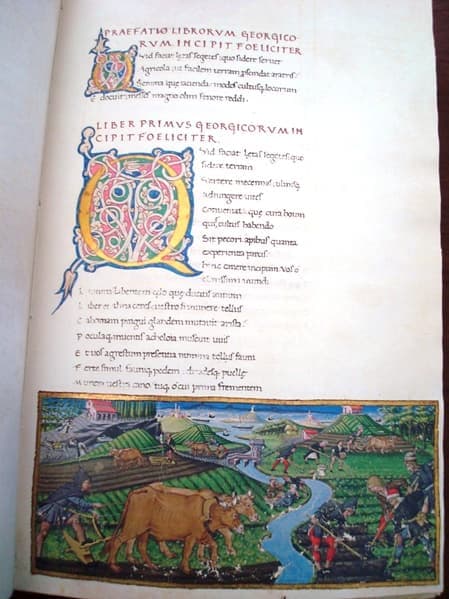 PRAEFATIO LIBRORVM GEORGICO
RVM INCIPIT FOELICITER
Vid faciat lętas segetes; quo sidere servet
Agricola, ut facilem terram proscindat aratris
Semina que iacienda; modos cultusq; locorum
E docuit; messes magno olim fenore reddi.
LIBER PRIMVS GEORGICORVM IN
CIPIT FOELICITER.
Vid faciat lętas segetes; quo
sidere terram
Vertere mecenas; ulmisq;
adiungere vites
Conveniat; quę cura boum
qui; cultus habendo
Sit pecori; apibus quanta
experientia
hinc canere incipiam. Vos o
clarissima mundi
Lumina labentem cęlo que ducitis annum
Liber et alma ceres vestro si munere tellus
Chaoniam pingui glandem mutavit arista
Poculaq; acheloia miscuit uvis
Et vos agrestum presentia numina fauni
Ferte simul fauniq; pedem; driadesq; puellę
Munera vestra cano. tuq; o cui prima frementem